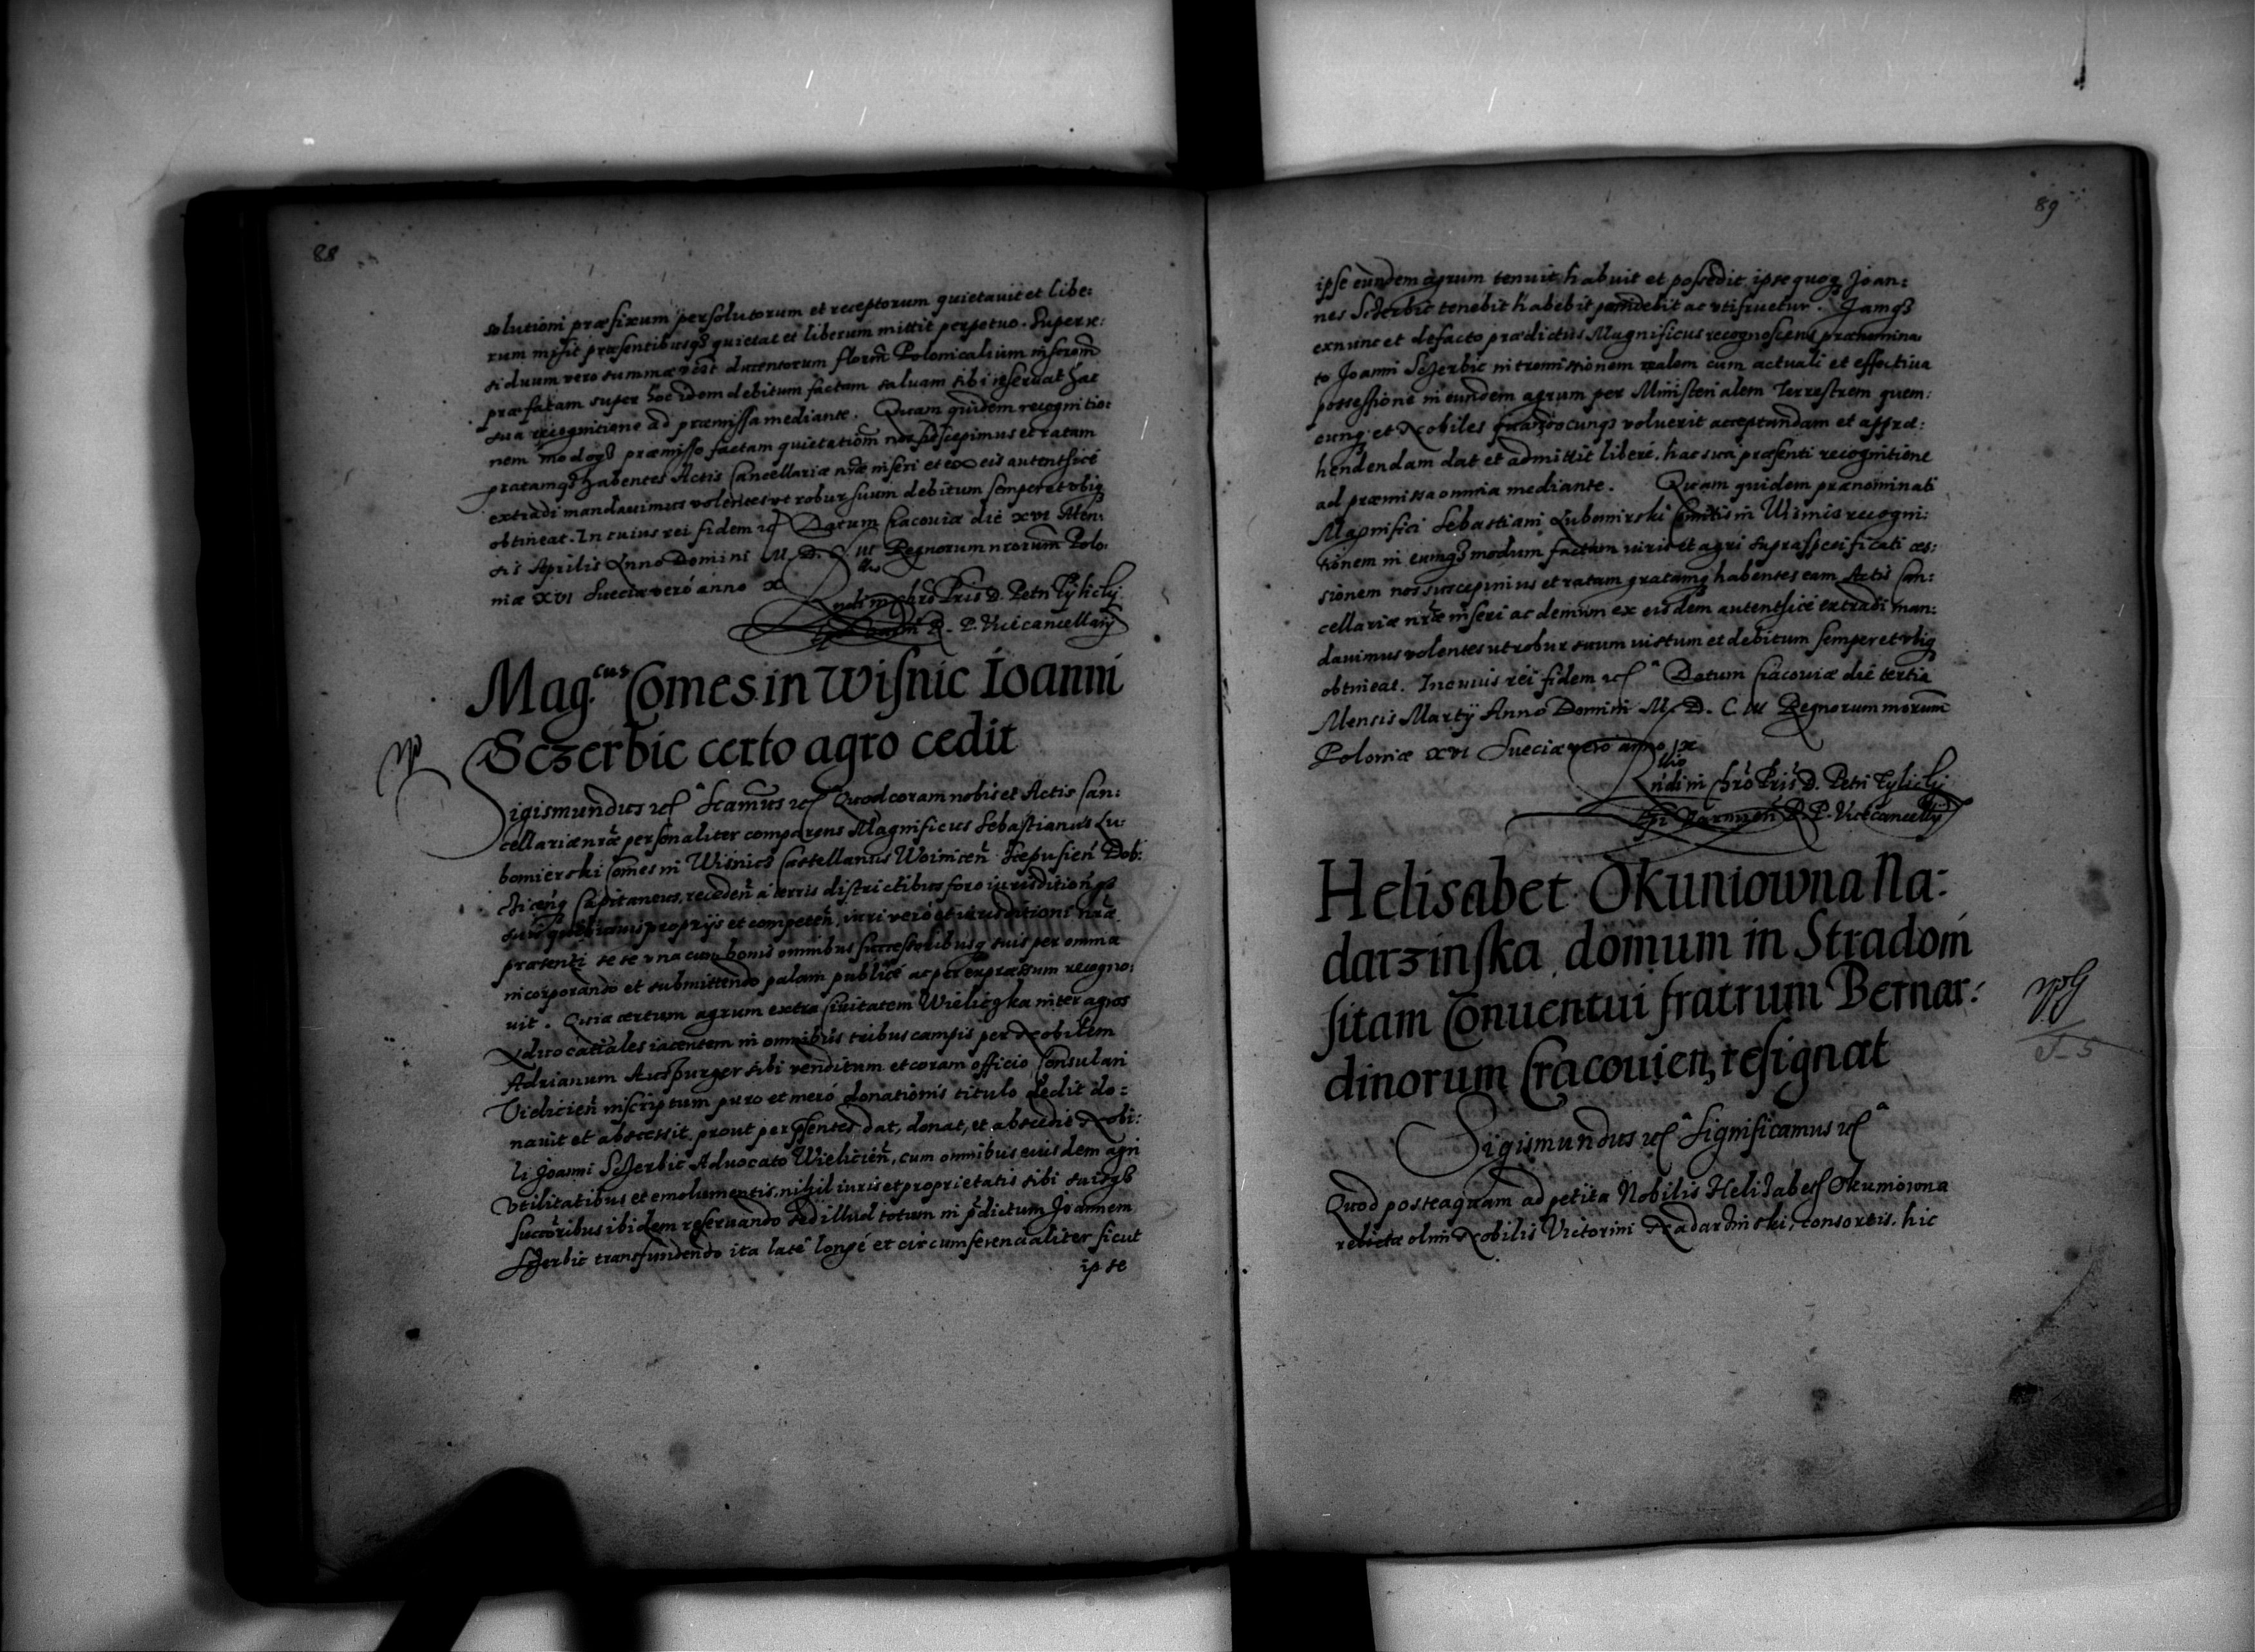 88
solutioni præfixum persolutorum et receptorum quietauit et libe:
rum misit præsentibusq3 quietat et liberum mittit perpetuo. Super re:
siduum vero summæ vi3t ducentorum floren Polonicalium inscrom
præfatam super hoc idem debitum factam saluam sibi reseruat hac
sua recognitione ad præmissa mediante. Quam quidem recognitio:
nem modoq3 præmisso factam quietationem nos suscepimus et ratam
gratamq3 habentes Actis Cancellariæ nræ inseri et ex eis autenthicé
extradi mandauimus volentes vt robur suum debitum semper et vbiq
obtineat. In cuius rei fidem etc Datum Cracouiæ die XVI Men:
sis Aprilis Anno Domini M. D. C. III Regnorum nrorum Polo:
niæ XVI Sueciæ veró anno X
Rndi in Chro Pris D. Petri Tylicky
P. Vicecancellarij
Mag.cus Comes in Wisnic Ioanni
Sczerbic certo agro cedit
Sigismundus etc Scamus etc Quod coram nobis et Actis Can:
cellariæ nræ personaliter comparens Magnificus Sebastianus Lu:
bomierski Comes in Wisnicz Castellanus Woinicen Scepusien Dob:
chicenq Capitaneus, receden a terris districtibus foro iurisditionq3
suis quibusuis proprijs et competen, iuri veró et iurisditioni nræ
præsenti se se vna cum bonis omnibus successoribusq suis per omnia
incorporando et submittendo palam publicé ac per expressum recogno:
uit. Quia certum agrum extra Ciuitatem Wieliczka inter agros
Aduocatiales iacentem in omnibus tribus campis per Nobilem
Adrianum Auspurger sibi venditum et coram officio Consulari
Vielicien inscriptum puro et meró donationis titulo dedit do:
nauit et abscessit prout per psentes dat, donat, et abscedit Nobi:
li Joanni Sczerbic Aduocato Wielicien, cum omnibus eiusdem agri
vtilitatibus et emolumentis, nihil iuris et proprietatis sibi suisq3
succoribus ibidem reseruando sed illud totum in pdictum Joannem
Sczerbic transfundendo ita laté longé et circumferencialiter sicut
ipse
89
ipse eundem agrum tenuit habuit et possedit ipse quoq Joan:
nes Sczerbic tenebit habebit possidebit ac vtifruetur. Jamq3
exnunc et defacto prædictus Magnificus recognoscens prænomina
to Joanni Sczerbic intromissionem realem cum actuali et effectiua
possessione in eundem agrum per Ministerialem Terrestrem quem:
cunq et Nobiles quandocunq3 voluerit acceptandam et appræ:
hendendam dat et admittit liberé, hac sua præsenti recognitione
ad præmissa omnia mediante. Quam quidem prænominati
Magnifici Sebastiani Lubomirski Comitis in Wisnic recogni:
tionem in eumq3 modum factam iuris et agri supraspecificati ces:
sionem nos suscepimus et ratam gratamq habentes eam Actis Can:
cellariæ nræ inseri ac demum ex eisdem autenthicé extradi man:
dauimus volentes ut robur suum iustum et debitum semper et vbiq
obtineat. In cuius rei fidem etc Datum Cracouiæ die tertia
Mensis Martij Anno Domini M. D. C. III Regnorum nrorum
Poloniæ XVI Sueciæ vero anno IX
Rndi in Chro Pris D. Petri Tylicky
Epi Varmien R. P. Vicecancellrij
Helisabet Okuniowna Na:
darzinska domum in Stradom
sitam Conuentui fratrum Bernar:
dinorum Cracouien, resignat
Sigismundus etc Significamus etc
Quod posteaquam ad petita Nobilis Helizabeth Okuniowna
relicta olim Nobilis Victorini Nadarzinski, consortis, hic